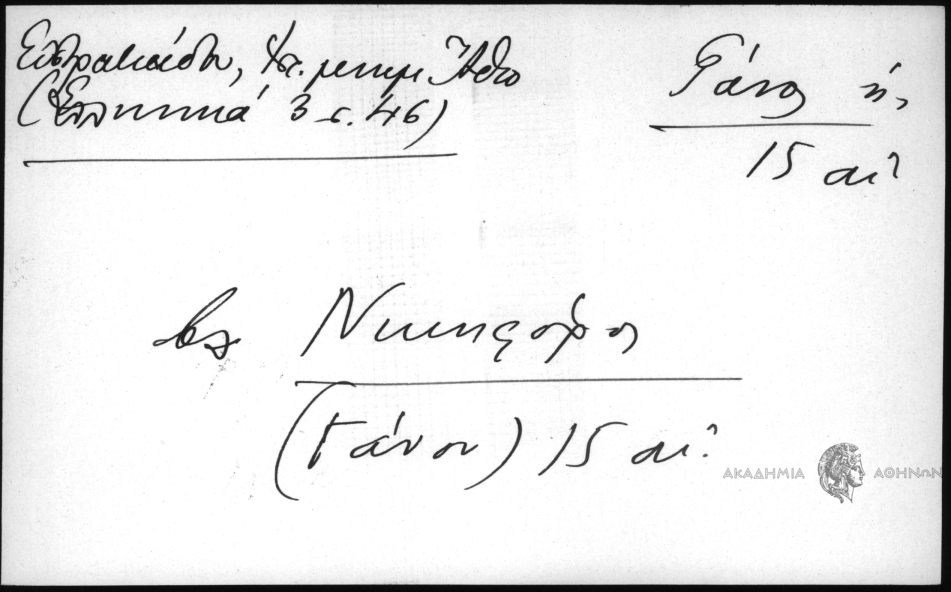 Εὐστρατιάδου, Ἱστ. μνημ. Ἄθω
(Ἑλληνικά 3 σ. 46)
Γάνος ἡ,
15 αἰ.
βλ. Νικηφόρος
(Γάνου) 15 αἰ.
ΑΚΑΔΗΜΙΑ ΑΘΗΝΩΝ